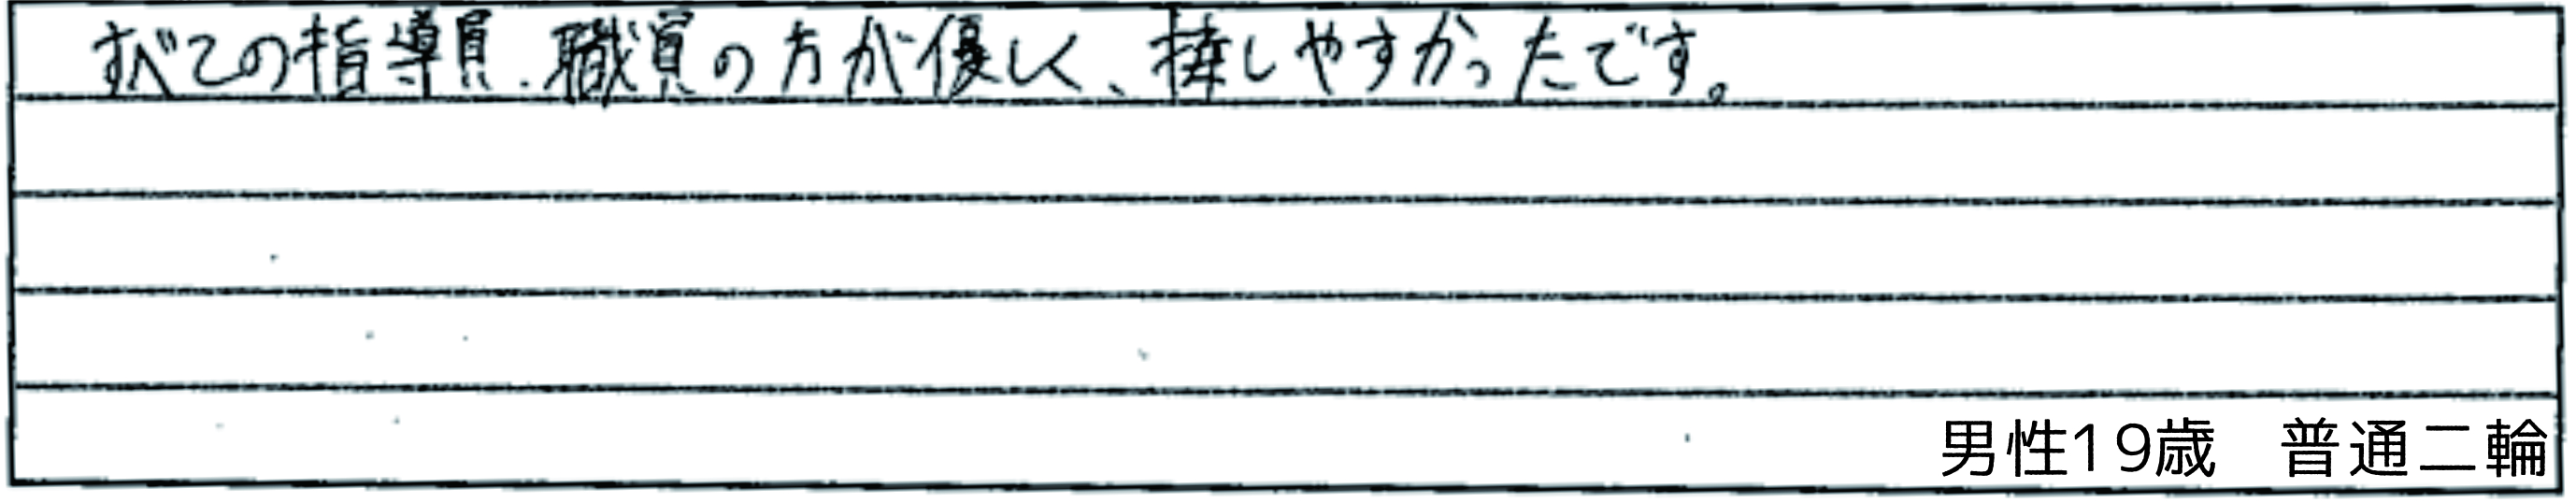 すべての指導員、職員の方が優しく、接しやすかったです。
男性19歳 普通二輪